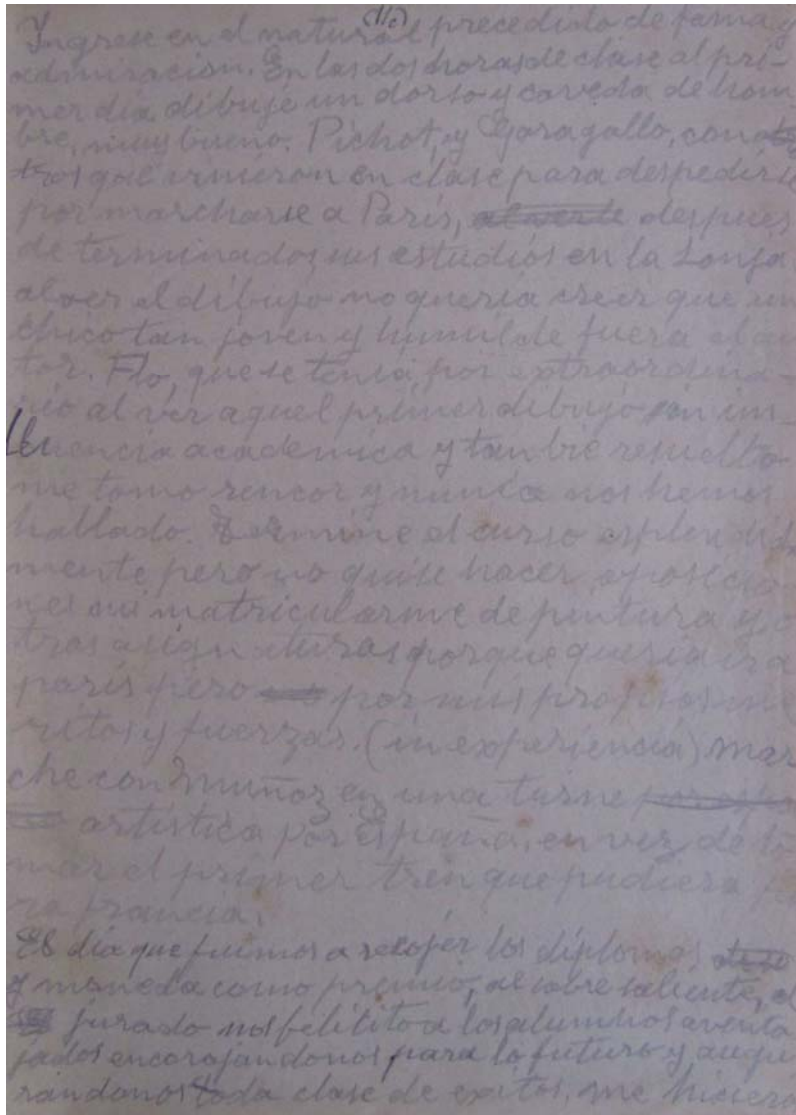 Ingrese en el natural precedido de fama y
admiracion. En las dos horas de clase al pri-
mer dia dibujé un dorso y caveda de hom
bre, muy bueno. Pichot, y Garagallo, con
tros que vinieron en clase para despedirse
por marcharse a París, despues
de terminados sus estudios en la Lonja
al ver el dibujo no queria creer que un
chico tan joven y humilde fuera el au
tor. Flo, que se tenia por extraordina-
rio al ver aquel primer dibujo sin in-
fluencia academica y tan bie resuelto
me tomo rencor y nunca nos hemos
hallado. Termine el curso esplendida
mente pero no quise hacer oposicio-
nes ni matricularme de pintura y o
tras asignaturas porque queria ir a
parís pero por mis propios me
ritos y fuerzas. (inexperiencia) Mar
che con Muñoz en una turne
artistica por España, en vez de to
mar el primer tren que pudiera pa
ra francia.
El dia que fuimos a recojer los diplomas
y moneda como premio, de sobre saliente, el
jurado nos felicito a los alumnos aventa
jados encorajandonos para lo futuro y augu
randonos toda clase de exitos, me hiciero